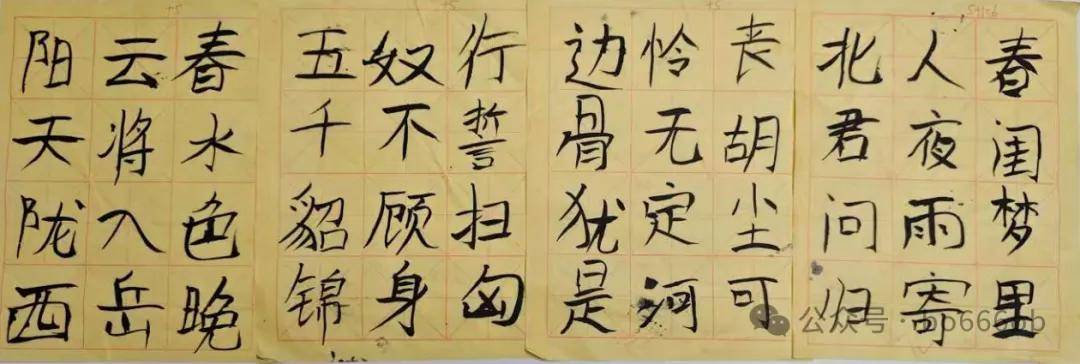 春水色晚
云将入岳
阳天陇西
行誓扫匈
奴不顾身
五千貂锦
丧胡尘可
怜无定河
边骨犹是
春闺梦里
人夜雨寄
北君问归
公众号